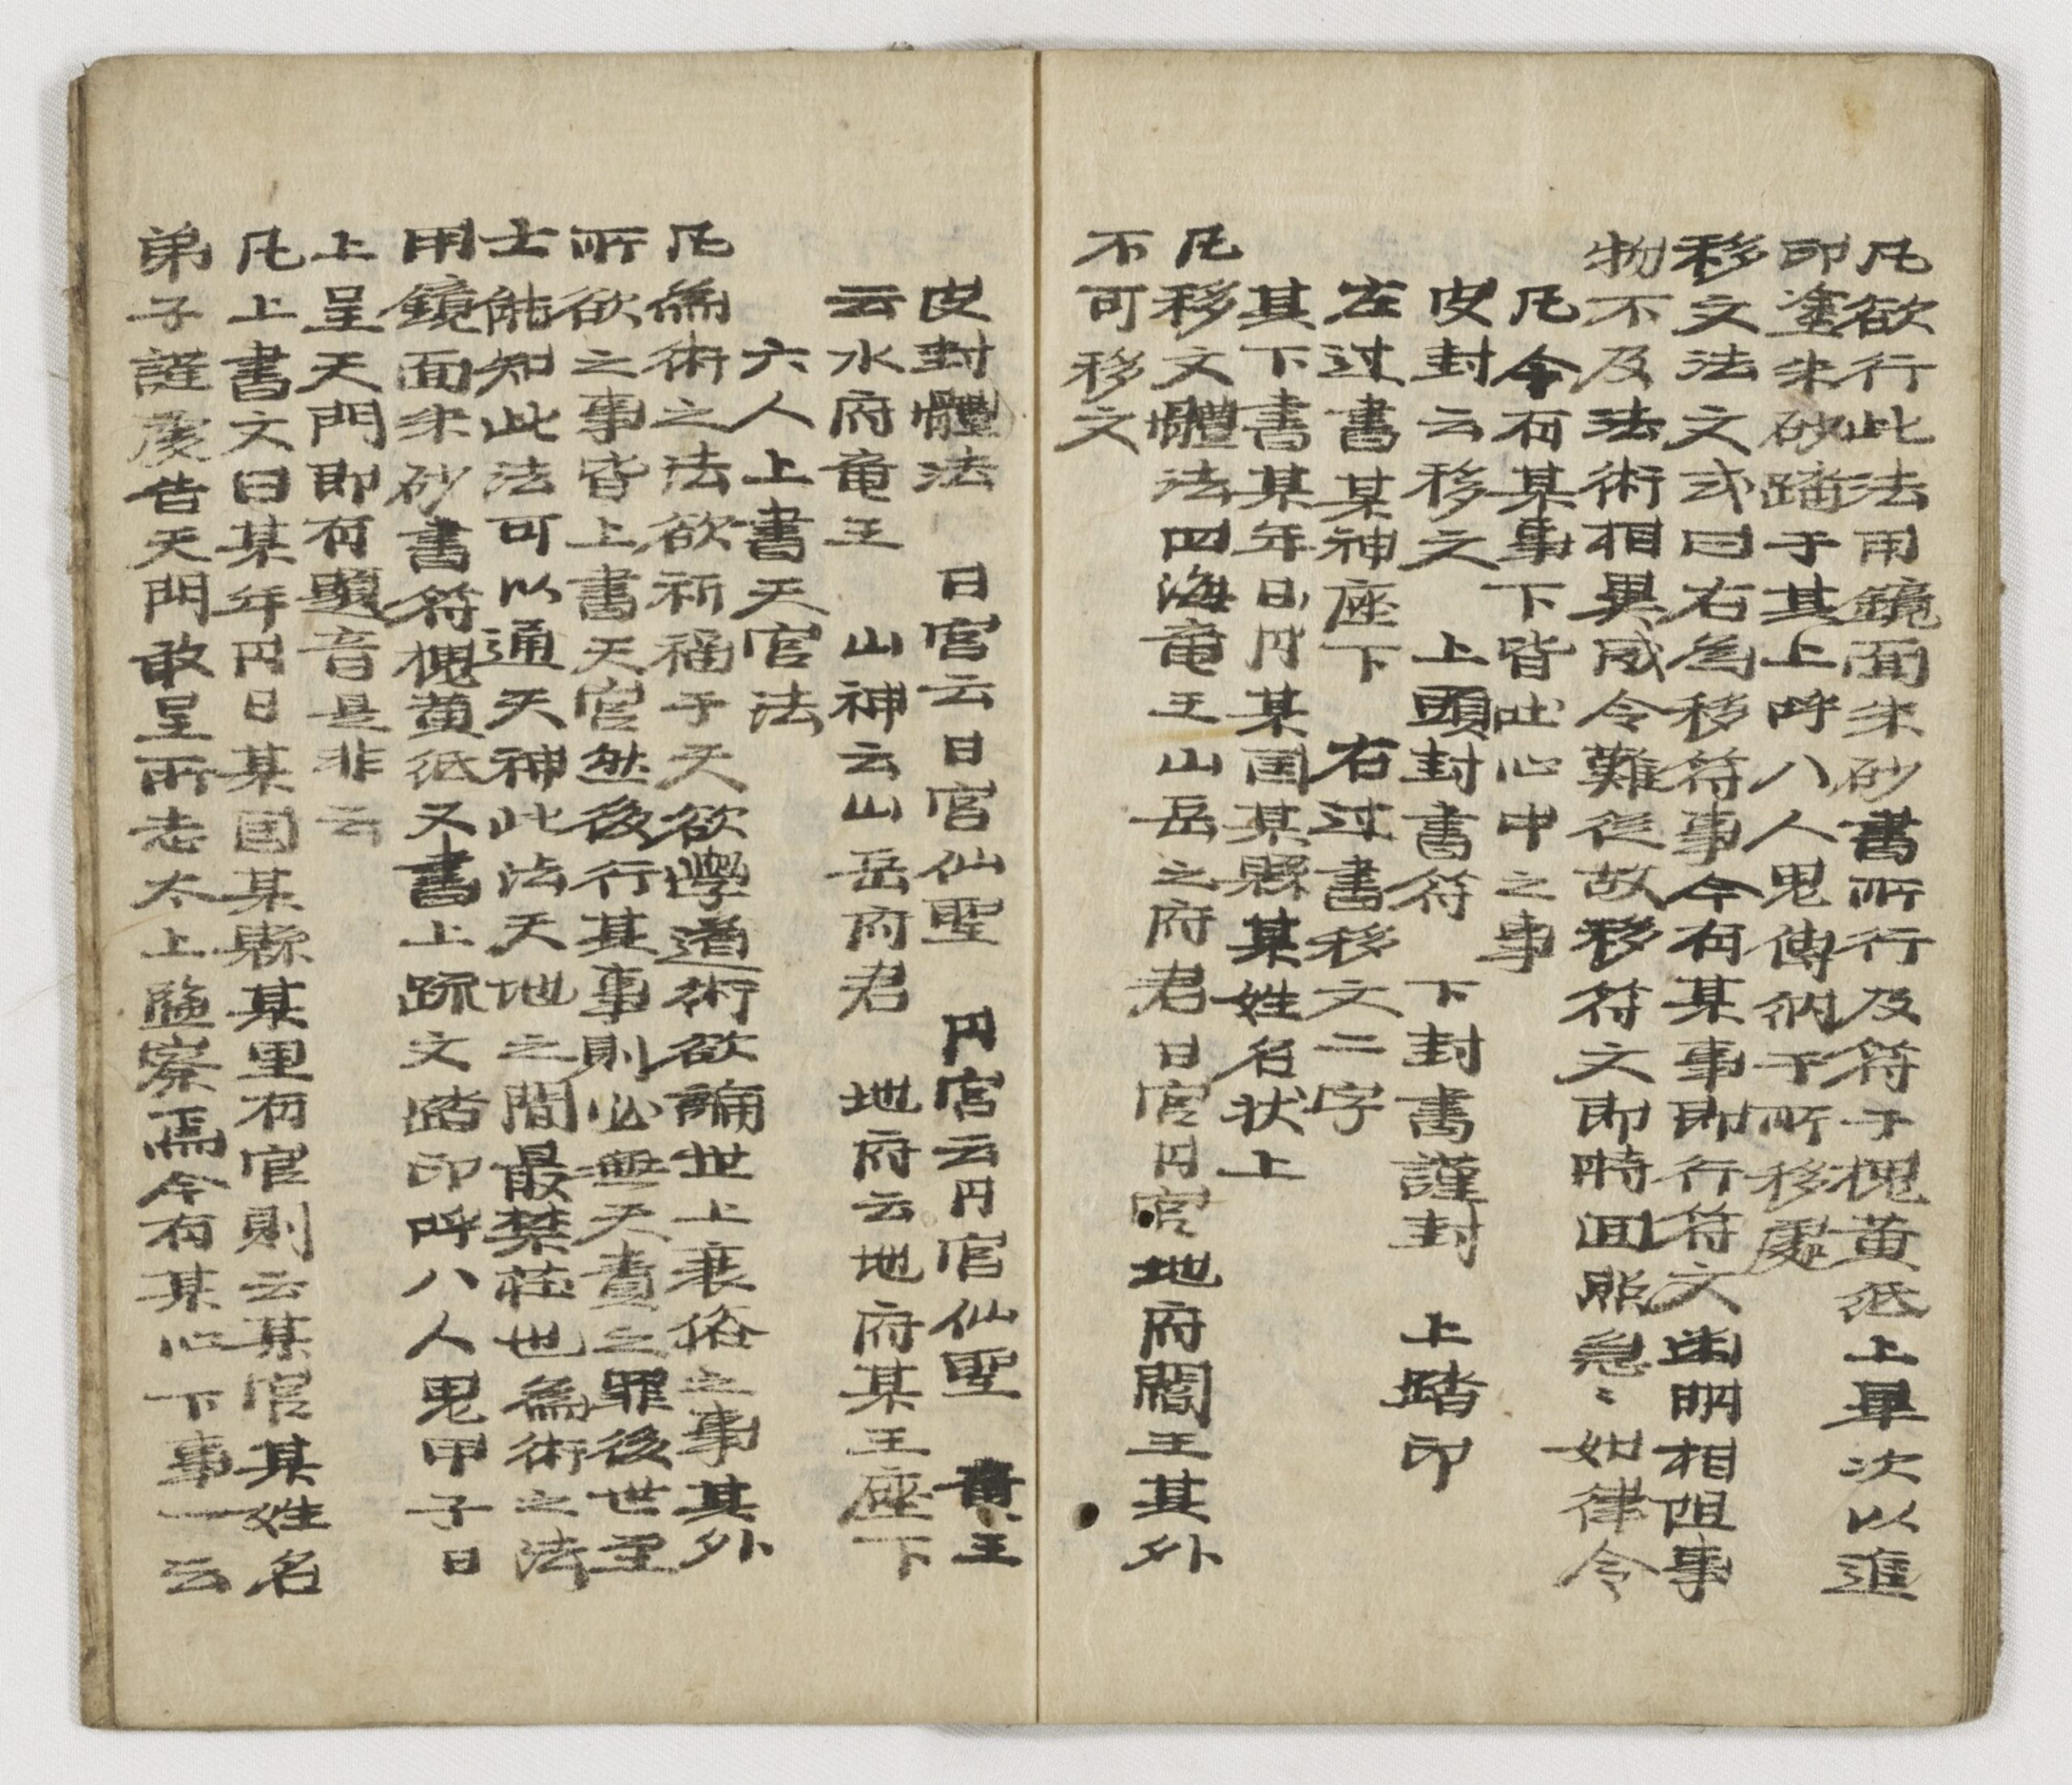 凡欲行此法用鏡面朱砂書所行及符于槐黄紙上畢次以進
印塗朱砂踏于其上呼八人鬼傳納于所移處
移文法文式曰右爲移符事今有某事即行符文幽明相阻事
物不及法術相異威令難從故移符文即時回照急〻如律令
凡今有某事下皆此心中之事
皮封云移文　上頭封書符　下封書謹封　上踏印
左过書某神座下　右过書移文二字
其下書某年月日某国某縣某姓名状上
凡移文體法四海竜王山岳之府君日官円官地府閻王其外
不可移文
皮封體法　日官云日官仙聖　円官云円官仙聖　竜王
云水府竜王　山神云山岳府君　地府云地府某王座下
六人上書天官法
凡爲術之法欲祈福于天欲學道術欲論世上衰俗之事其外
所欲之事皆上書天官然後行其事則必無天責之罪後世至
士能知此法可以通天神此法天地之間最禁在也爲術之法
用鏡面朱砂書符槐黄紙又書上疏文踏印呼八人鬼甲子日
上呈天門即有顕音是非云
凡上書文曰某年円日某国某縣某里有官則云某官某姓名
弟子謹虔告天門敢呈所志太上鑒察焉今有某心下事一云